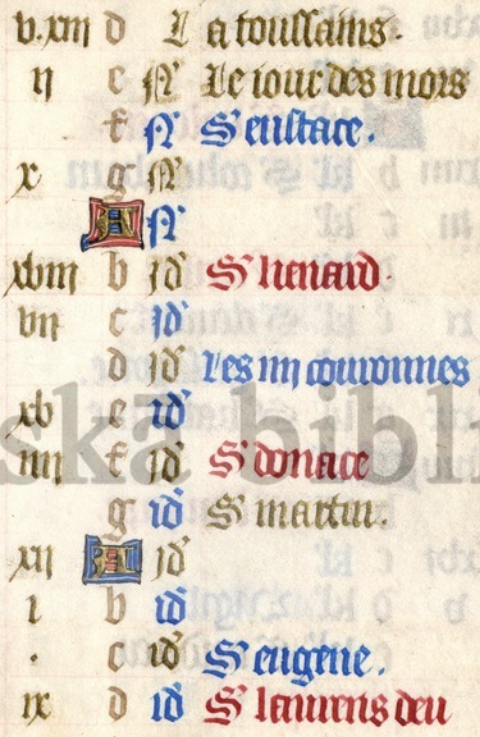 v.xiii d L a toussains.
ii e N Le iour des mors
f N S' eustace.
x g N
A N
xviii b id S' lienard.
vii c id
d id Les iiii couronnes
xv e id
iiii f id S' donace
g id S martin.
xii A id
i b id
. c id S' eugene.
ix d id S' laurens deu
ska bibli